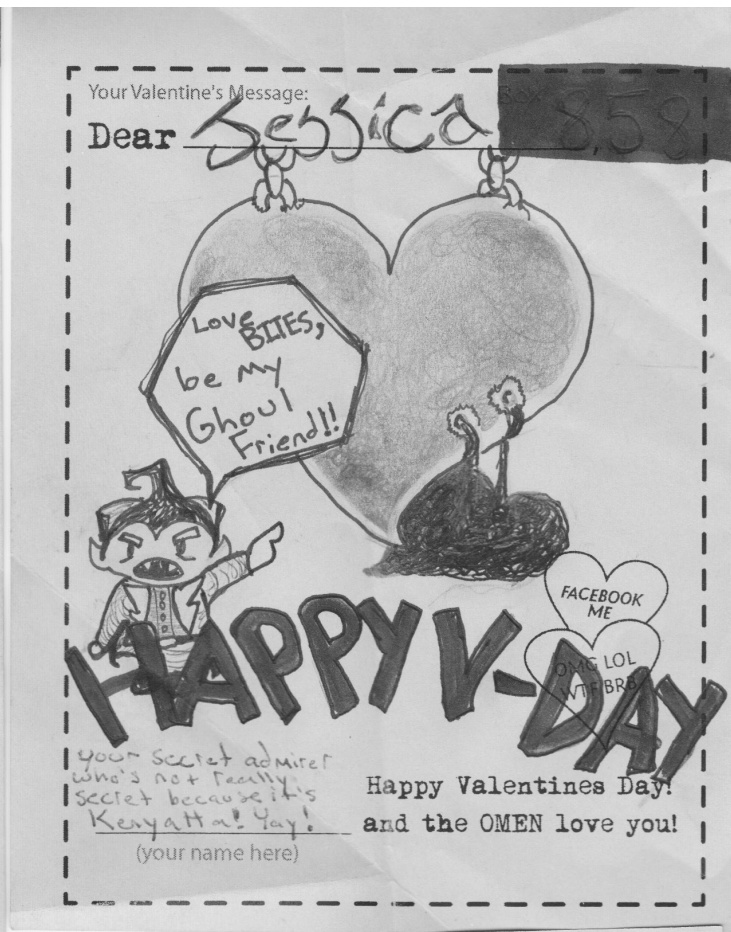 Your Valentine's Message:
Box
Dear Jessica, 858
Love
BITES,
be my
Ghoul
Friend!!
FACEBOOK
ME
OMG LOL
WTF BRB
HAPPY V-DAY
your secret admirer
who's not really
secret because it's
Kenyatta! Yay!
(your name here)
Happy Valentines Day!
and the OMEN love you!